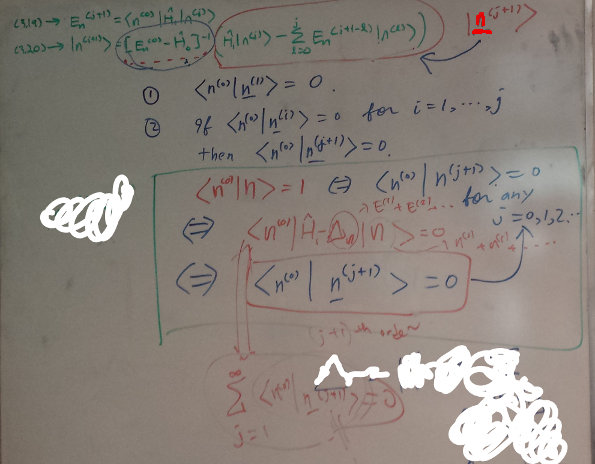 (3.19) → E_n^(j+1) = <n^(0)|Ĥ_1|n^(j)>
(3.20) → |n^(j+1)> = [E_n^(0) - Ĥ_0]^-1 (Ĥ_1|n^(j)> - Σ_{l=0}^{j} E_n^(j+1-l)|n^(l)>) |n^(j+1)>
① <n^(0)|n^(1)> = 0.
② If <n^(0)|n^(i)> = 0 for i = 1, ..., j
then <n^(0)|n^(j+1)> = 0.
<n^(0)|n> = 1 ⇔ <n^(0)|n^(j+1)> = 0
for any
j = 0, 1, 2...
λE^(1) + E^(2)...
⇔ <n^(0)|Ĥ_1 - Δ_n|n> = 0
⇔ <n^(0)|n^(j+1)> = 0
(j+1)th order
Σ_{j=1}^∞ <n^(0)|n^(j+1)> = 0